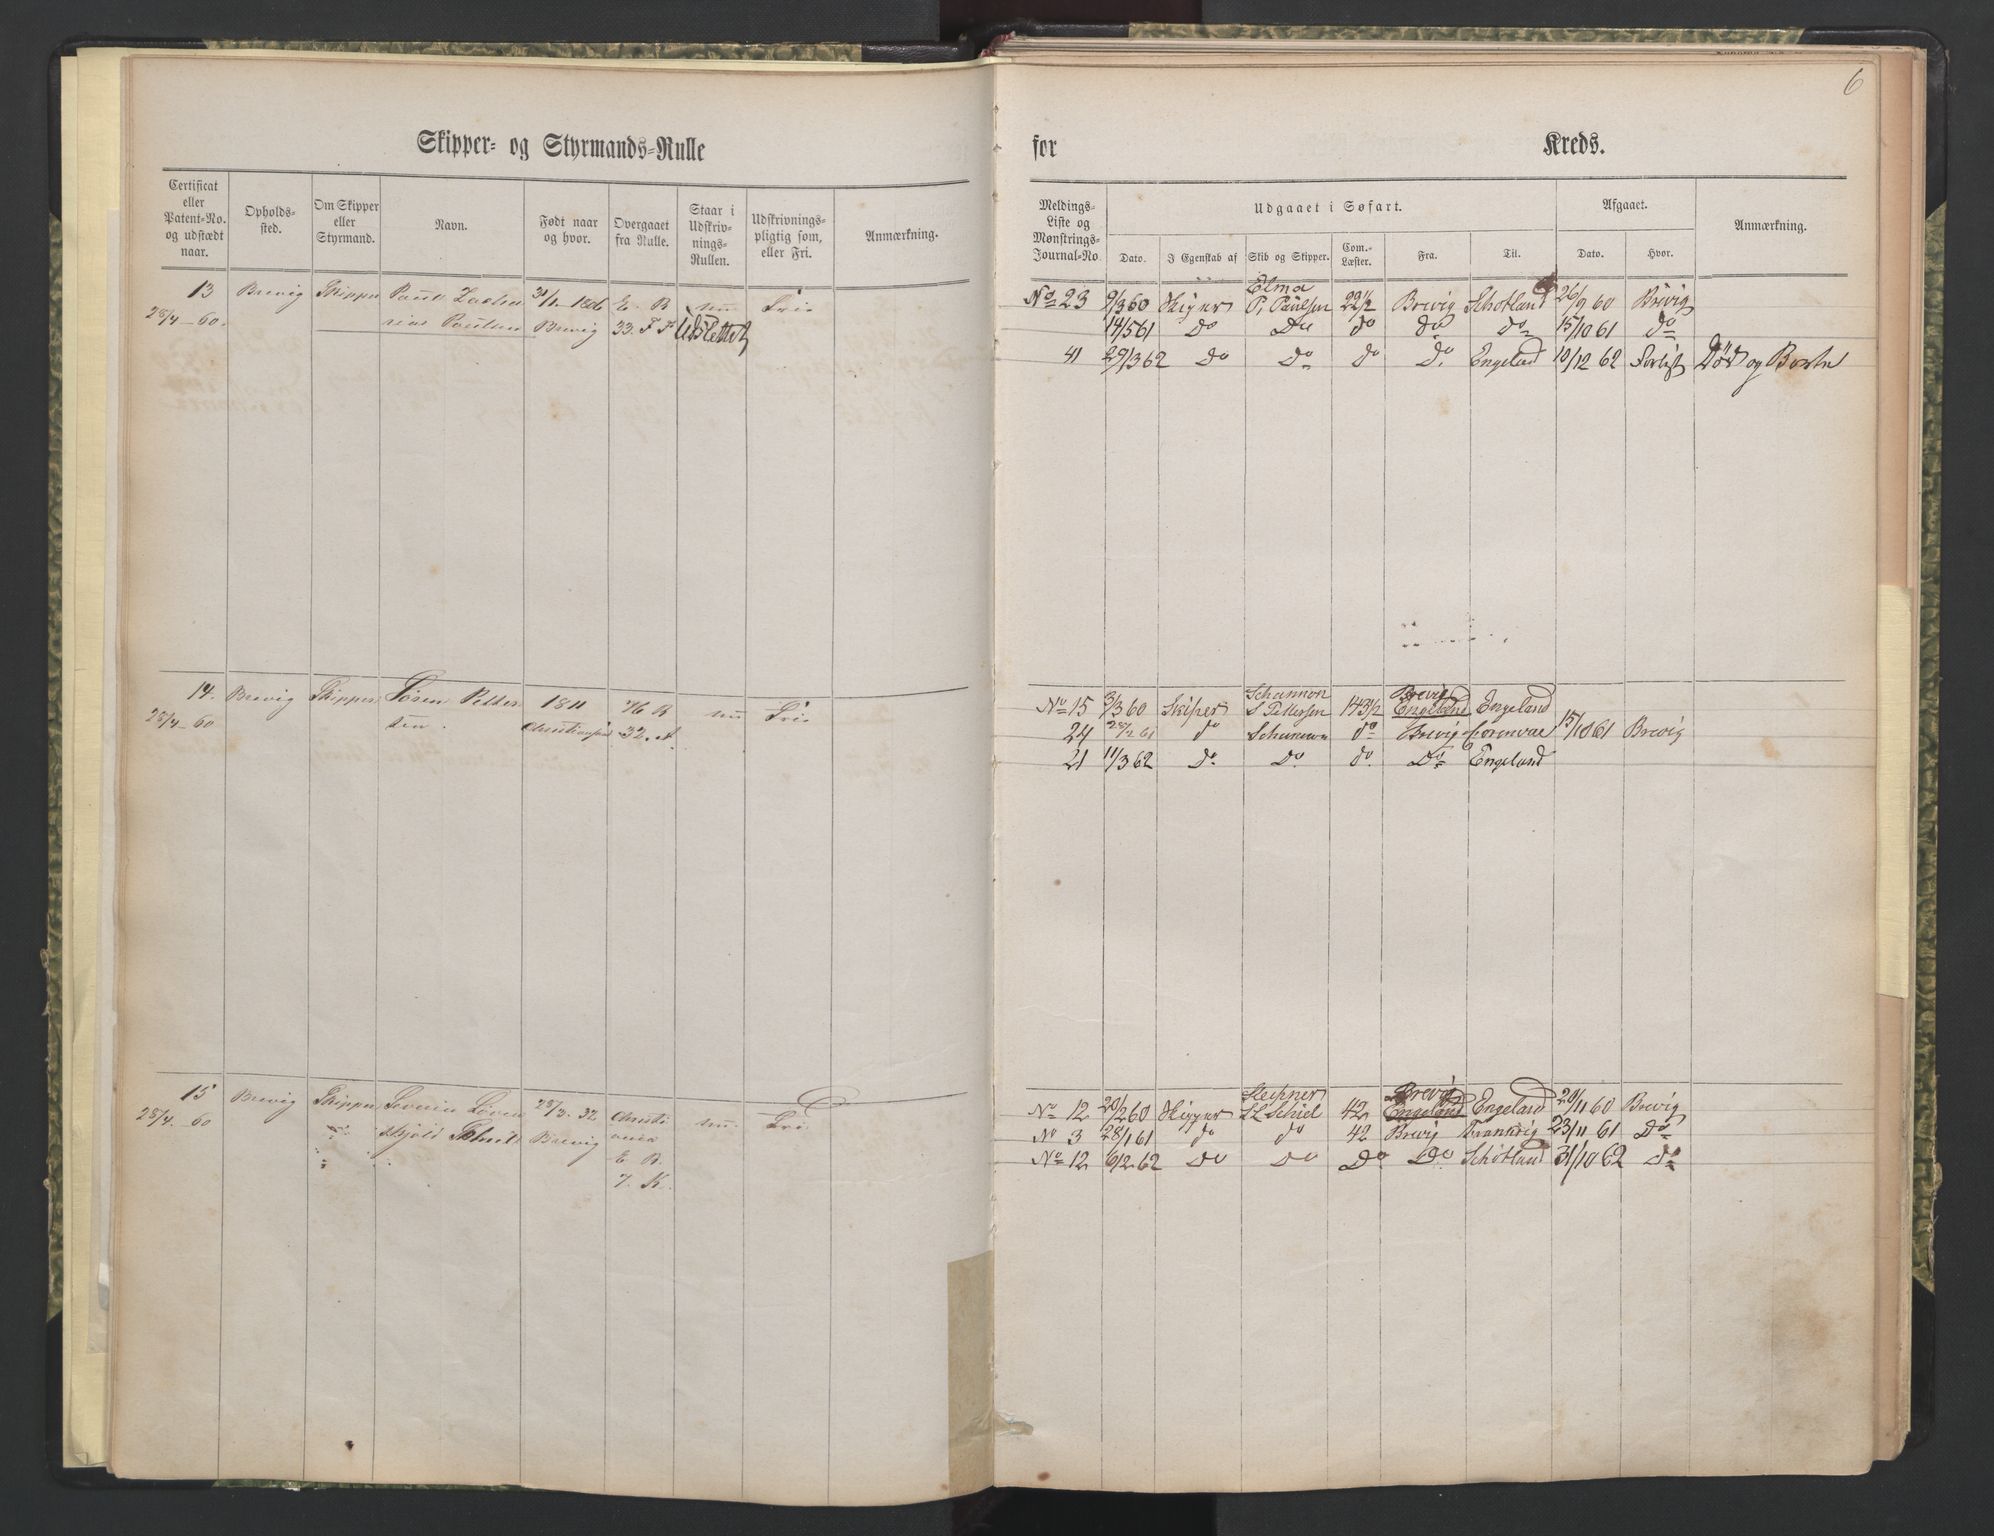 6
Skipper- og Styrmands-Rulle for Kreds.
Certificat eller Patent-No. og udstædt naar.
Opholds-sted.
Om Skipper eller Styrmand.
Navn.
Født naar og hvor.
Overgaaet fra Rulle.
Staar i Udskriv-nings-Rullen.
Udskrivnings-pligtig som, eller Fri.
Anmærkning.
Meldings-Liste og Mønstrings-Journal-No.
Udgaaet i Søfart.
Dato. I Egenskab af Skib og Skipper. Com.-Læster. Fra. Til.
Afgaaet.
Dato. Hvor.
Anmærkning.
13 Brevig Skipper Paul Zacha- 31/1 1806 E. B Fri
28/4-60. rias Paulsen Brevig 33. Udslettet
Elma
No 23 9/3 60 P. Paulsen 22 1/2 Brevig Schotland 26/9 60 Brevig
14/5 61 Do Do do do do 15/10 61 do
41 29/3 62 Do Do do do Engeland 10/12 62 Forlist Død og Borte
14. Brevig Skipper Søren Petter- 1811 Fri
28/4-60 sen. 32.
Schannon Brevig
No 15 3/3 60 Skiper S Pettersen 143 1/2 Engeland Engeland
24 28/2 61 do do Brevig 15/10 61 Brevig
21 11/3 62 Do Do do Do Engeland
15 Brevig Skipper Severin Løven- 28/3. 32 Christi- Fri
28/4-60 skjold Brevig ania
E B.
7. K.
Brevig
No 12 20/2 60 42 Engeland Engeland 20/11 60 Brevig
No 3 28/1 61 do do 42 Brevig 23/11 61 Do
No 12 6/2 62 Do Do Do Do Schotland 31/10 62 do